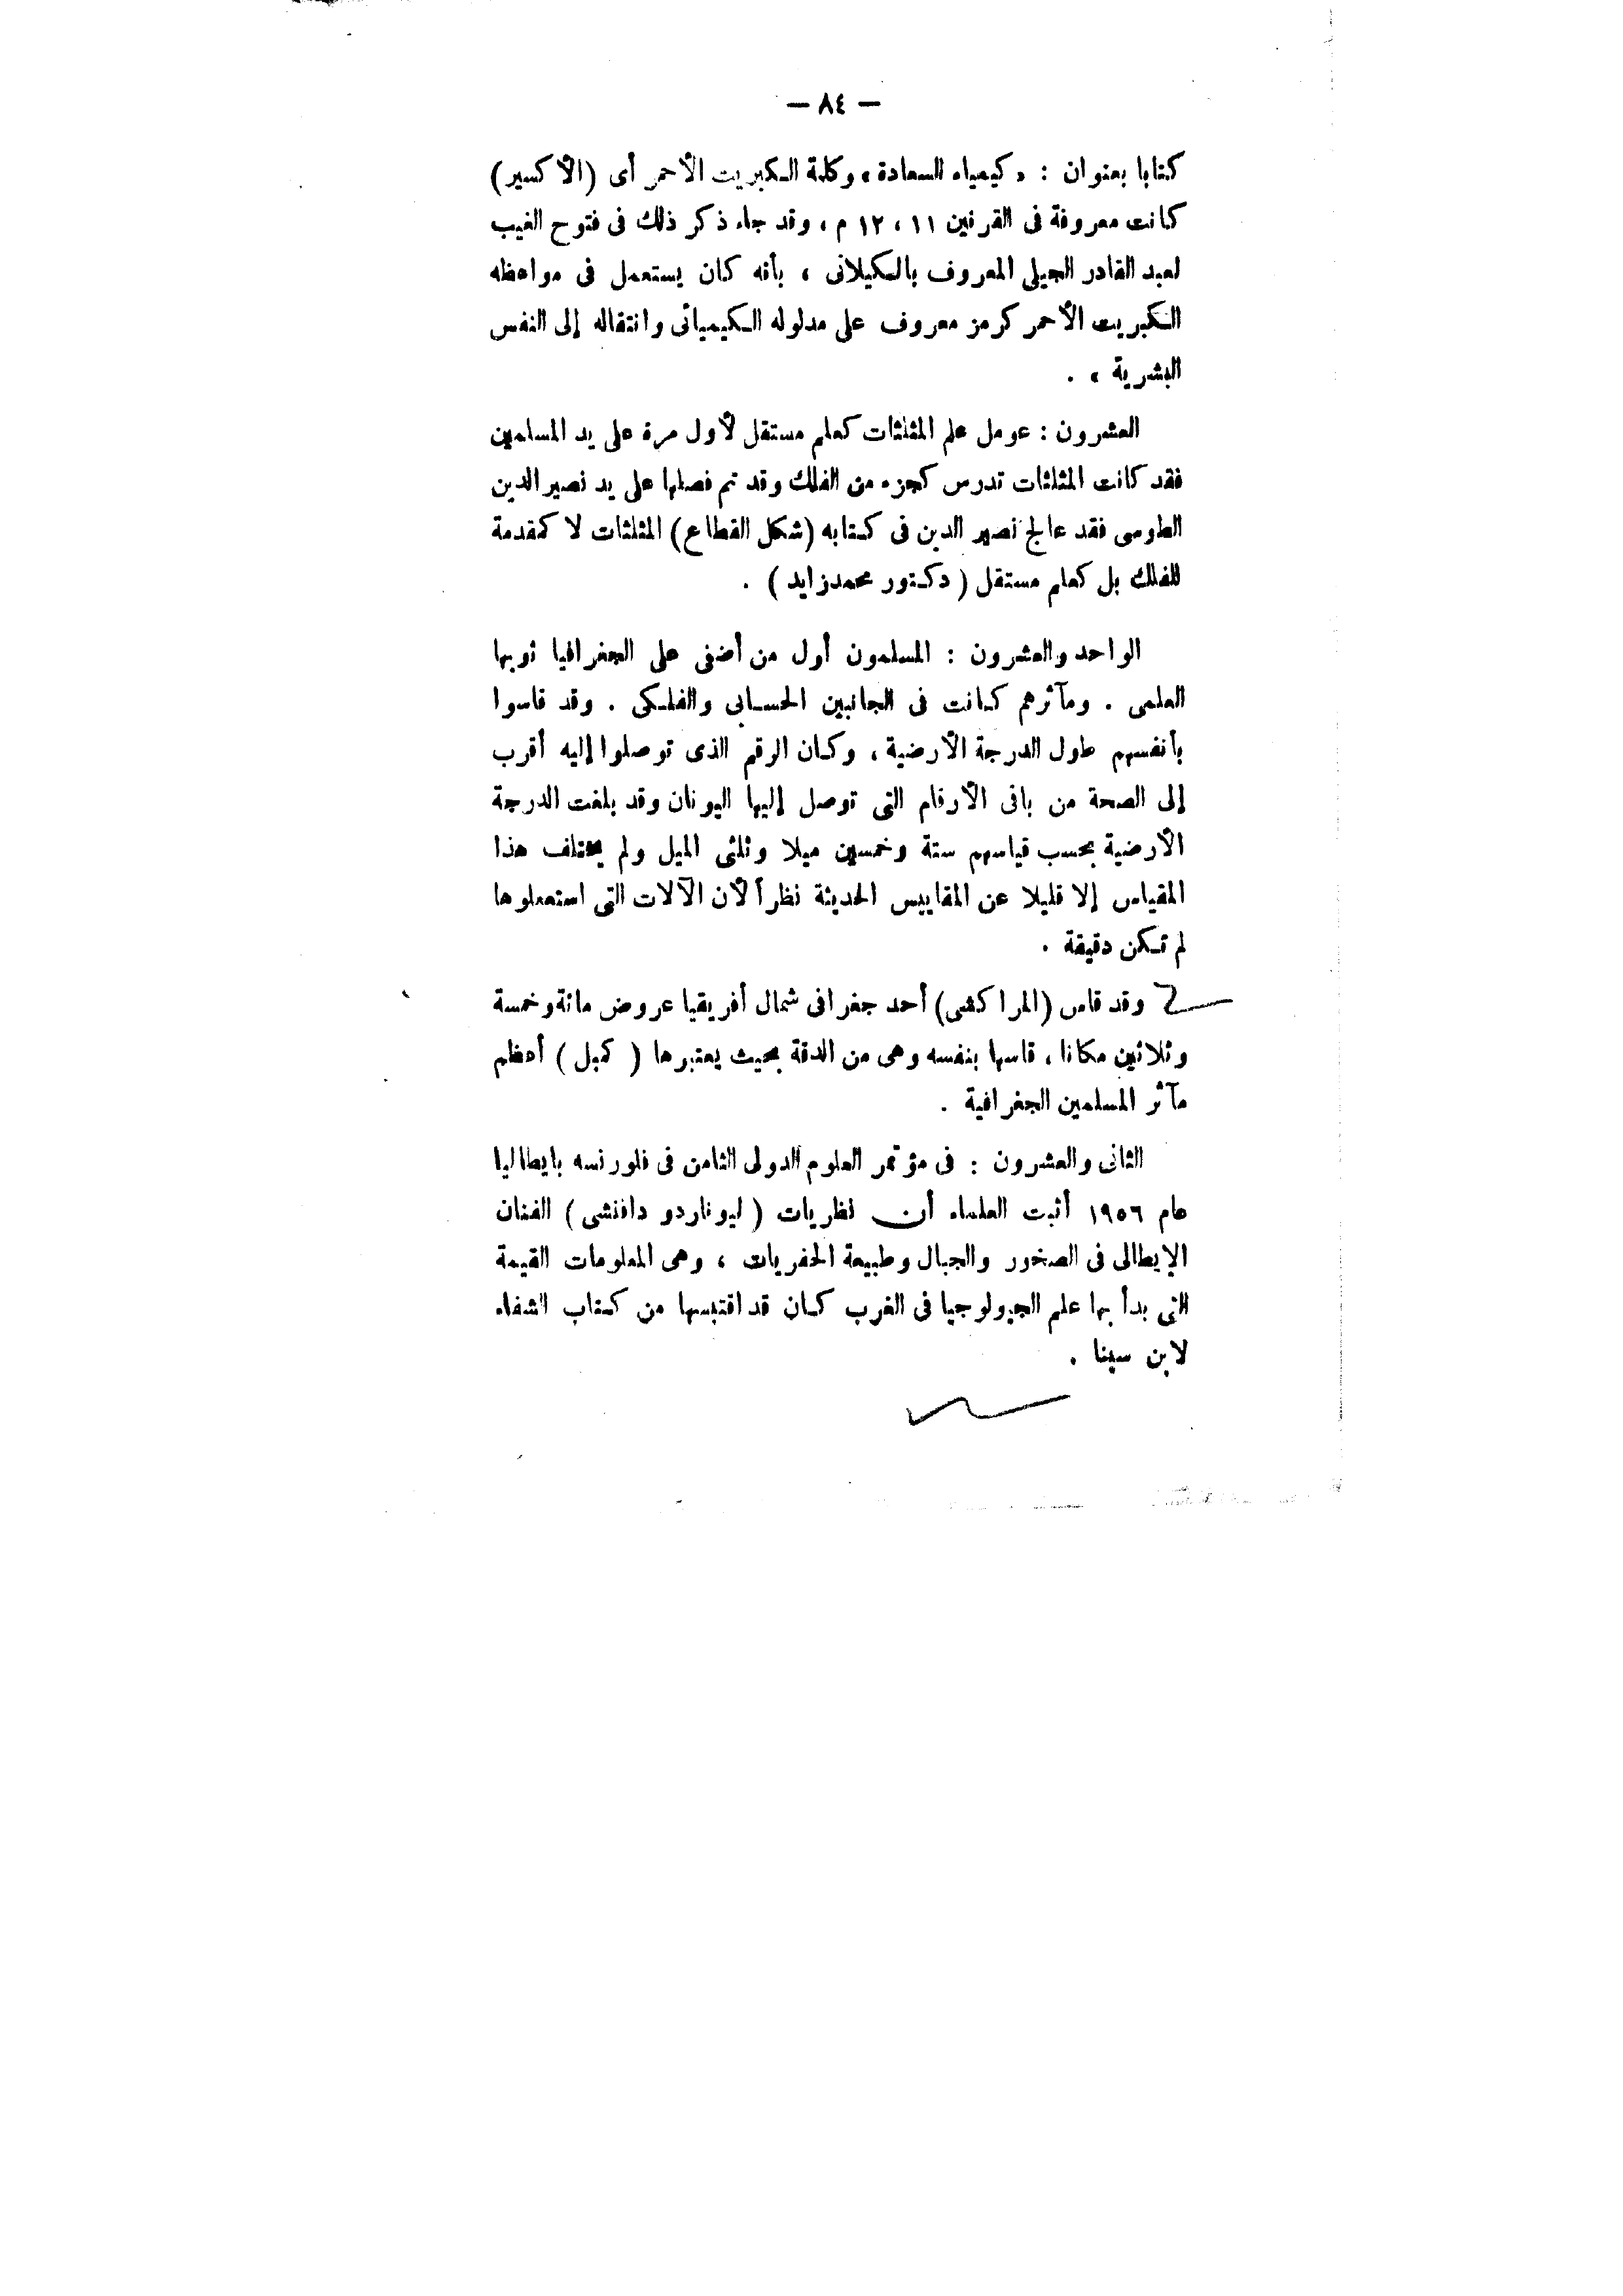 — ٨٤ —
كتابا بعنوان : « كيمياء السعادة » وكلمة الكبريت الأحمر أى (الأكسير)
كانت معروفة فى القرنين ١١ ، ١٢ م ، وقد جاء ذكر ذلك فى فتوح الغيب
لعبد القادر الجيلى المعروف بالكيلانى ، بأنه كان يستعمل فى مواعظه
الكبريت الأحمر كرمز معروف على مدلوله الكيميائى وانتقاله إلى النفس
البشرية » .
العشرون : عومل علم المثلثات كعلم مستقل لأول مرة على يد المسلمين
فقد كانت المثلثات تدرس كجزء من الفلك وقد تم فصلها على يد نصير الدين
الطوسى فقد عالج نصير الدين فى كتابه (شكل القطاع) المثلثات لا كمقدمة
للفلك بل كعلم مستقل ( دكتور محمد زايد ) .
الواحد والعشرون : المسلمون أول من أضفى على الجغرافيا ثوبها
العلمى . ومآثرهم كانت فى الجانبين الحسابى والفلكى . وقد قاسوا
بأنفسهم طول الدرجة الأرضية ، وكان الرقم الذى توصلوا إليه أقرب
إلى الصحة من باقى الأرقام التى توصل إليها اليونان وقد بلغت الدرجة
الأرضية بحسب قياسهم ستة وخمسين ميلا وثلثى الميل ولم يختلف هذا
المقياس إلا قليلا عن المقاييس الحديثة نظرأ لأن الآلات التى استعملوها
لم تكن دقيقة .
وقد قاس (المراكشى) أحد جغرافى شمال أفريقيا عروض مائة وخمسة
وثلاثين مكانا ، قاسها بنفسه وهى من الدقة بحيث يعتبرها ( كمبل ) أعظم
مآثر المسلمين الجغرافية .
الثانى والعشرون : فى مؤتمر العلوم الدولى الثامن فى فلورنسه بايطاليا
عام ١٩٥٦ أثبت العلماء أن نظريات ( ليوناردو دافنشى ) الفنان
الإيطالى فى الصخور والجبال وطبيعة الحفريات ، وهى المعلومات القيمة
التى بدأ بها علم الجيولوجيا فى الغرب كان قد اقتبسها من كتاب الشفاء
لابن سينا .